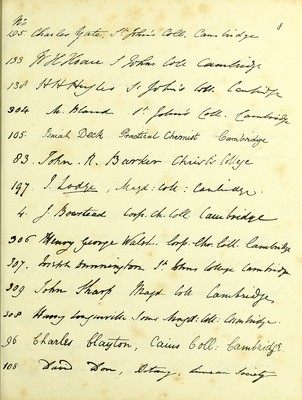 No 8
105 Charles Yate, St John's Coll. Cambridge
133 W H Hoare St Johns Coll Cambridge
138 H H Hughes St. John's Coll. Cambridge
304 M. Bland St John's Coll. Cambridge
105. Isaiah Deck Practical Chemist Cambridge
83. John. R. Barker Christ's College
197 J. Lodge, Magd: Coll: Cambridge.
4. J Bowstead Corp. Ch. Coll Cambridge
306 Henry George Walsh. Corp. Chr. Coll. Cambridge
307. Joseph St. Johns College Cambridge
309 John Sharp Magd Coll Cambridge
308 Harry Longueville Jones Magd: Coll: Cambridge.
96 Charles Clayton, Caius Coll: Cambridge.
108 David Don, Linnean Society